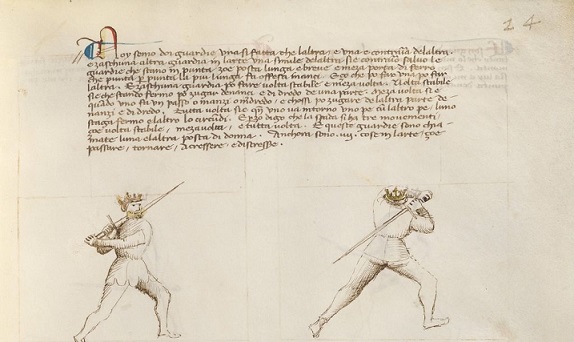 Noy semo doi guardie una si fatta che laltra, e una e contraria delaltra.
E zaschuna altra guardia in larte una simile delaltra sie contrario salvo le
guardie che stano in punta, zoe posta lunga e breve e meza porta di ferro
che punta per punta la piu lunga fa offesa inanci. E zo che po far una po far
laltra. E zaschuna guardia po fare volta stabile e meza volta. Volta stabile
sie che stando fermo po zugar denanci e di dredo de una parte. Meza volta si e
quando uno fa un passo o inanzi o indredo, e chossi po zugare de laltra parte de
inanzi e di dredo. Tutta volta sie quando uno va intorno uno pe cum laltro pe luno
staga fermo e laltro lo circundi. E perzo digo che la spada si ha tre movimenti
zoe volta stabile, meza volta, e tutta volta. E queste guardie sono chia-
mate luna e laltra posta di donna. Anchora sono .iiij. cose in larte, zoe
passare, tornare, acressere, e discressere.
24